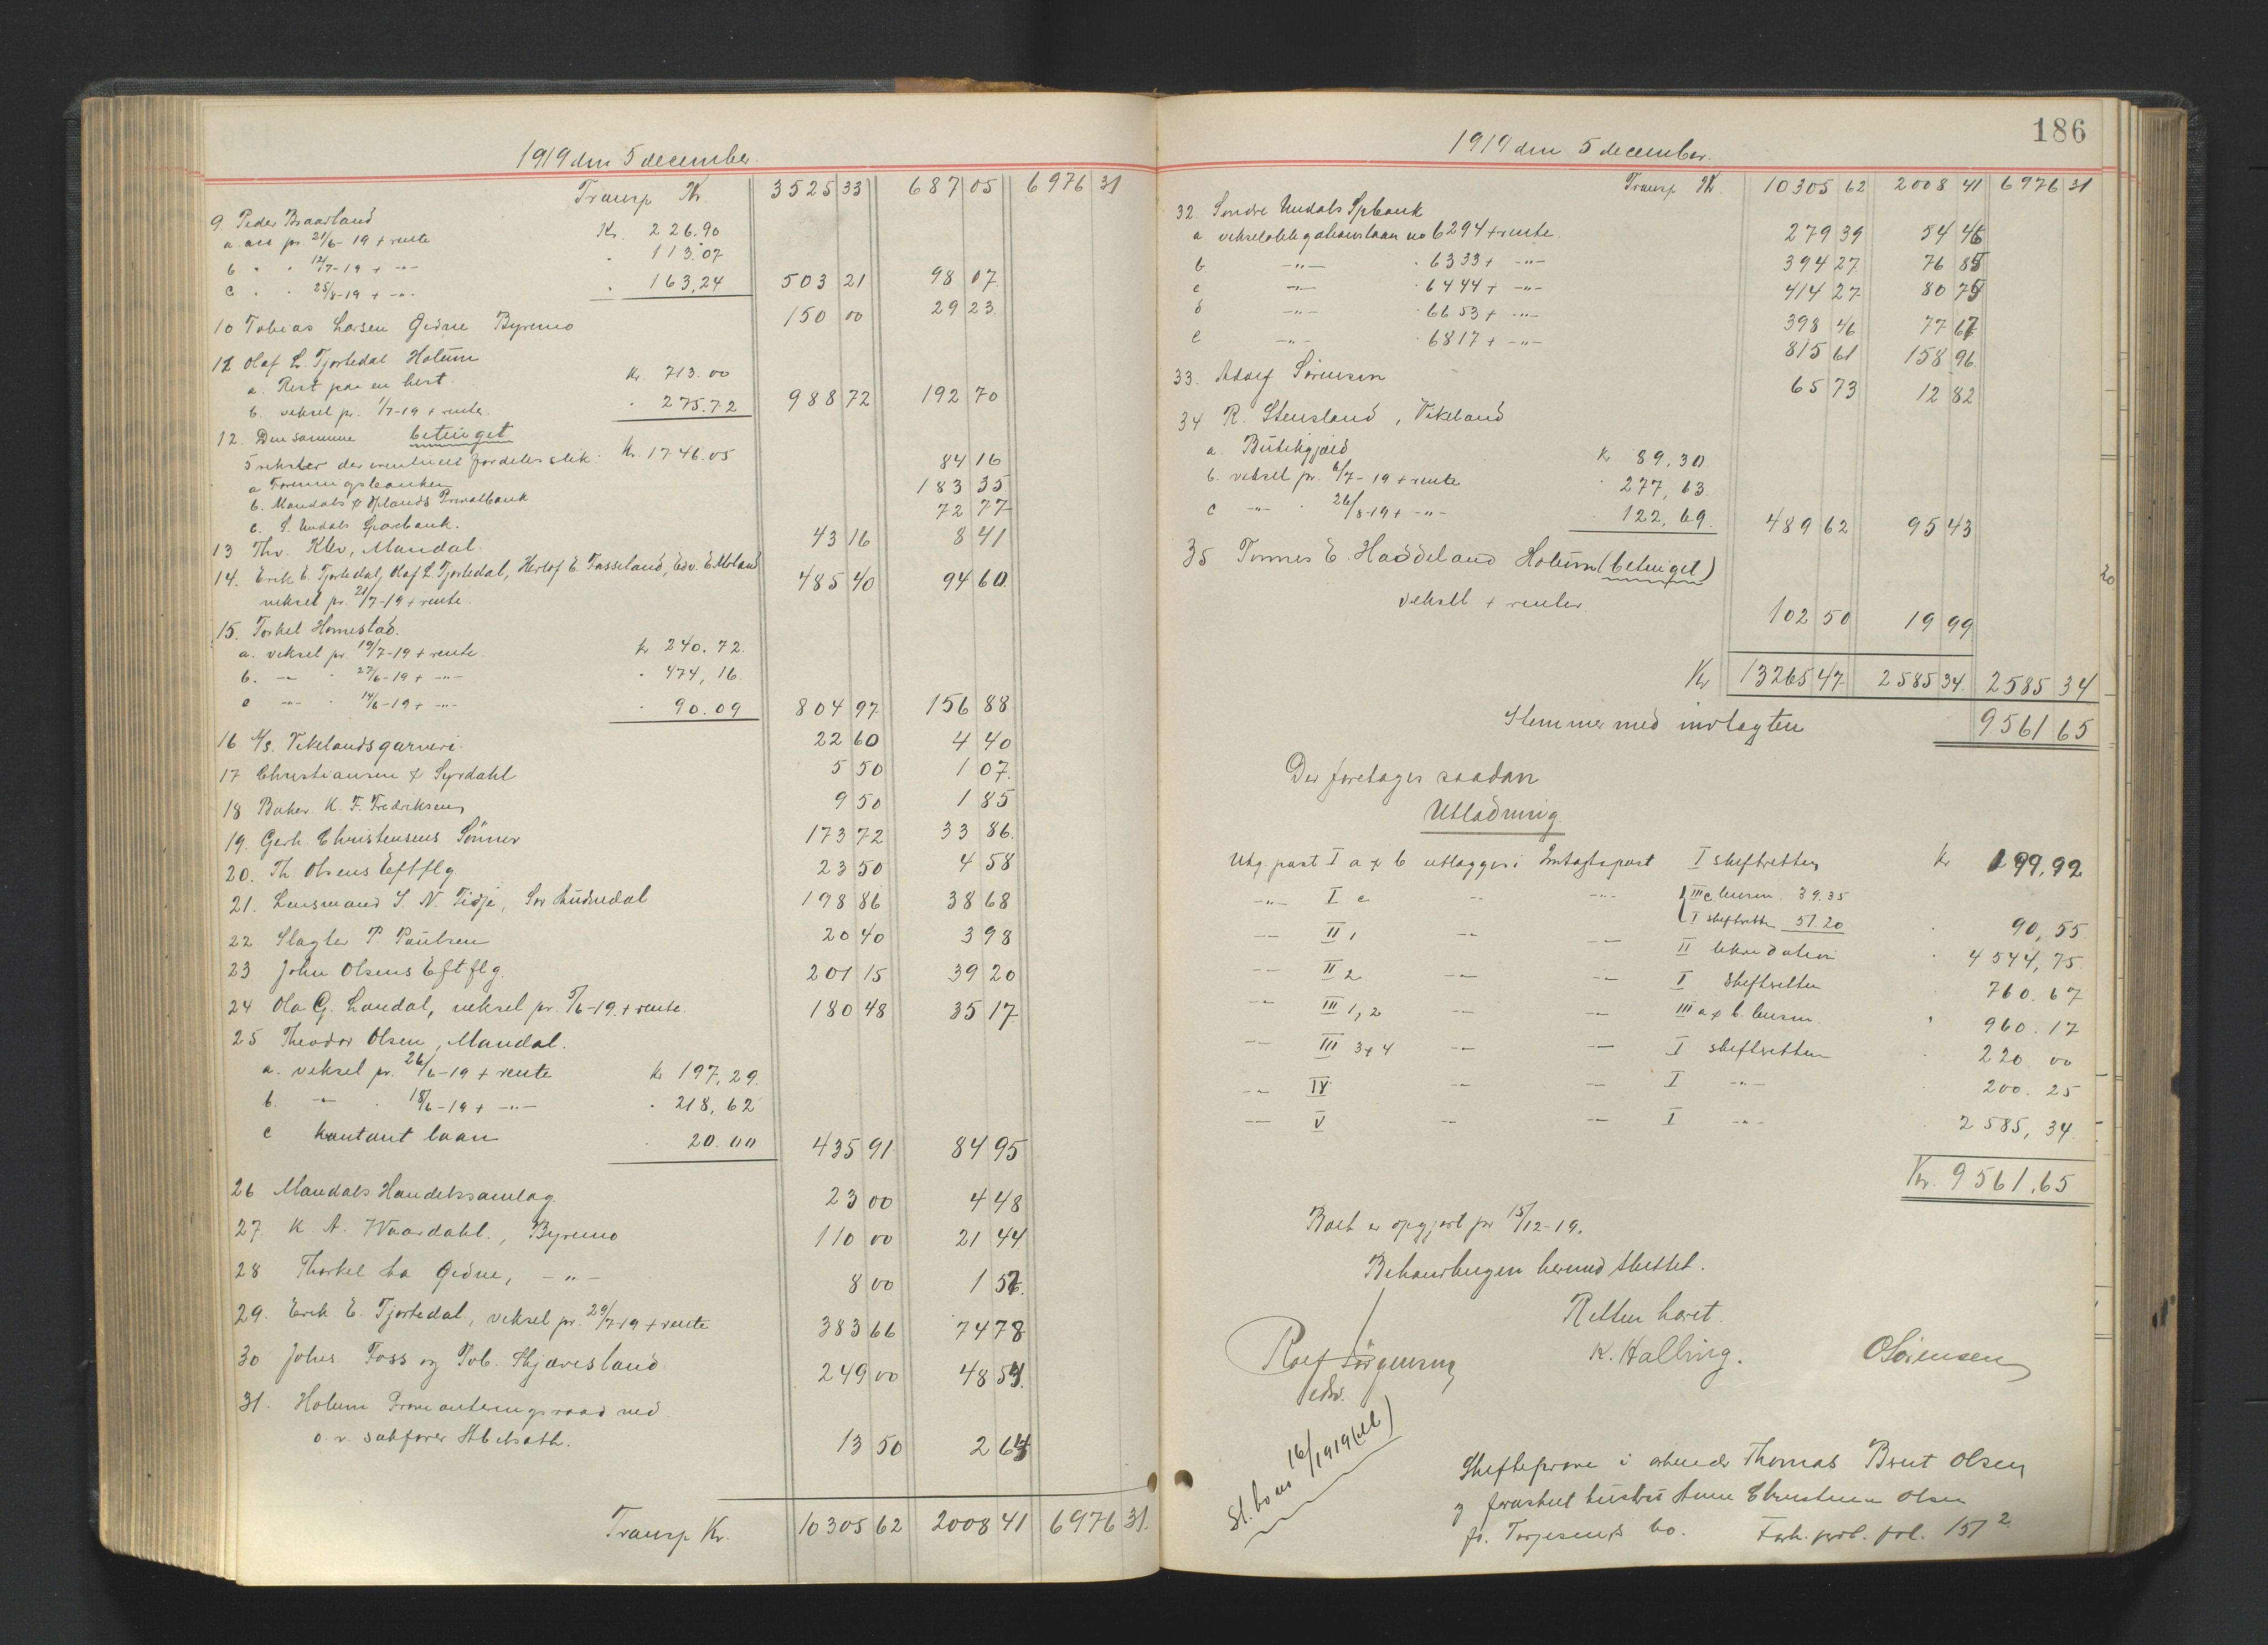 1919 den 5 december.
Transp Kr. 3525 33 687 05 6976 31
9 Peder Braastand
a. acc pr. 21/6-19 + rente Kr. 226.90
b " " 12/7-19 + -"- " 113.07
c " " 25/8-19 + -"- " 163,24 503 21 98 07
10 Tobias Larsen Gidne Byremo 150 00 29 23.
11 Olaf L. Tjortedal Holum
a. Rest paa en hest. Kr. 713.00
b. veksel pr. 1/7-19 + rente. " 275.72 988 72 192 70
12. Den samme betinget
5 veksler der eventuelt fordeles slik: Kr. 1746.05
a Foreningsbanken 84 16
b. Mandals & Oplands Privatbank 183 35
c. S. Undals Sparebank. 72 77
13 Thv. Klev, Mandal. 43 16 8 41
14. Erik E. Tjortedal, Olaf L. Tjortedal, Herlof E. Fasseland, Edv. E. Moland
veksel pr. 21/7-19 + rente. 485 40 94 60
15. Torkel Homestad.
a. veksel pr. 19/7-19 + rente. kr 240.72
b. -"- " 27/6-19 + -"- " 474,16
c -"- " 14/6-19 + -"- " 90.09 804 97 156 88
16 A/s. Vikelands garveri. 22 60 4 40
17 Christiansen & Syrdahl 5 50 1 07.
18 Baker K. F. Fredriksen 9 50 1 85
19. Gerh. Christensens Sönner 173 72 33 86.
20. Th. Olsens Eftflg. 23 50 4 58
21. Lensmand S. N. Tidje, Sør Audnedal 198 86 38 68
22 Slagter P. Paulsen 20 40 3 98
23 John Olsens Eftflg. 201 15 39 20
24 Ola G. Laudal, veksel pr. 5/6-19. + rente. 180 48 35 17
25 Theodor Olsen, Mandal.
a. veksel pr. 26/6-19 + rente Kr 197,29.
b. -"- " 18/6-19 + -"- " 218,62
c kontant laan " 20.00 435 91 84 95
26 Mandals Handelssamlag. 23 00 4 48
27. K. A. Waardahl., Byremo 110 00 21 44
28 Thorkel La Gidne, -"- 8 00 1 56.
29. Erik E. Tjortedal, veksel pr. 29/7-19 + rente 383 66 74 78
30 Johs. Foss og Tob. Skjævesland 249 00 48 54.
31. Holum Provianteringsraad ved
o. r. sakfører Abelseth. 13 50 2 64
Transp Kr. 10305 62 2008 41 6976 31.
186
1919 den 5 december.
Transp Kr. 10305 62 2008 41 6976 31
32. Søndre Undals Spbank
a vekselobligationslaan no 6294 + rente. 279 39 54 46
b. -"- " 6333 + -"- 394 27 76 85
c -"- " 6444 + -"- 414 27 80 75
d -"- " 6653 + -"- 398 46 77 67
e -"- " 6817 + -"- 815 61 158 96
33. Adolf Sørensen 65 73 12 82
34 R. Stensland, Vikeland
a. Butikgjæld Kr 89,30
b. veksel pr. 6/7-19 + rente " 277,63.
c -"- " 26/8-19 + -"- " 122,69. 489 62 95 43
35 Tønnes E. Haddeland Holum (betinget)
veksel + renter. 102 50 19 99
Kr 13265 47 2585 34. 2585 34
Stemmer med indtægten 9561 65
Der foretages saadan
Utlodning.
Utg. post I a & b utlægges i Indtægtspost I skifteretten Kr 199,92
-"- I c -"- -"- III c bensm. 39.35
I skifteretten 51.20 " 90,55.
-"- II 1 -"- -"- II likvidation " 4544,75.
-"- II 2 -"- -"- I skifteretten 760.67
-"- III 1, 2 -"- -"- III a & b. bensm. " 960.17
-"- III 3 & 4 -"- -"- I skifteretten " 220.00
-"- IV -"- -"- I -"- 200.25
-"- V -"- -"- I -"- 2585,34.
Kr. 9561,65
Boet er opgjort pr 15/12-19.
Behandlingen hermed sluttet.
Retten hævet.
Rolf Jørgensen K. Halling. O Sørensen
edsv.
Skifteprøve i arbeider Thomas Bernt Olsen
og forutdøde hustru Anne Christine Olsen
fø. Torjesens bo. Forh. prot. fol. 151 2.
20